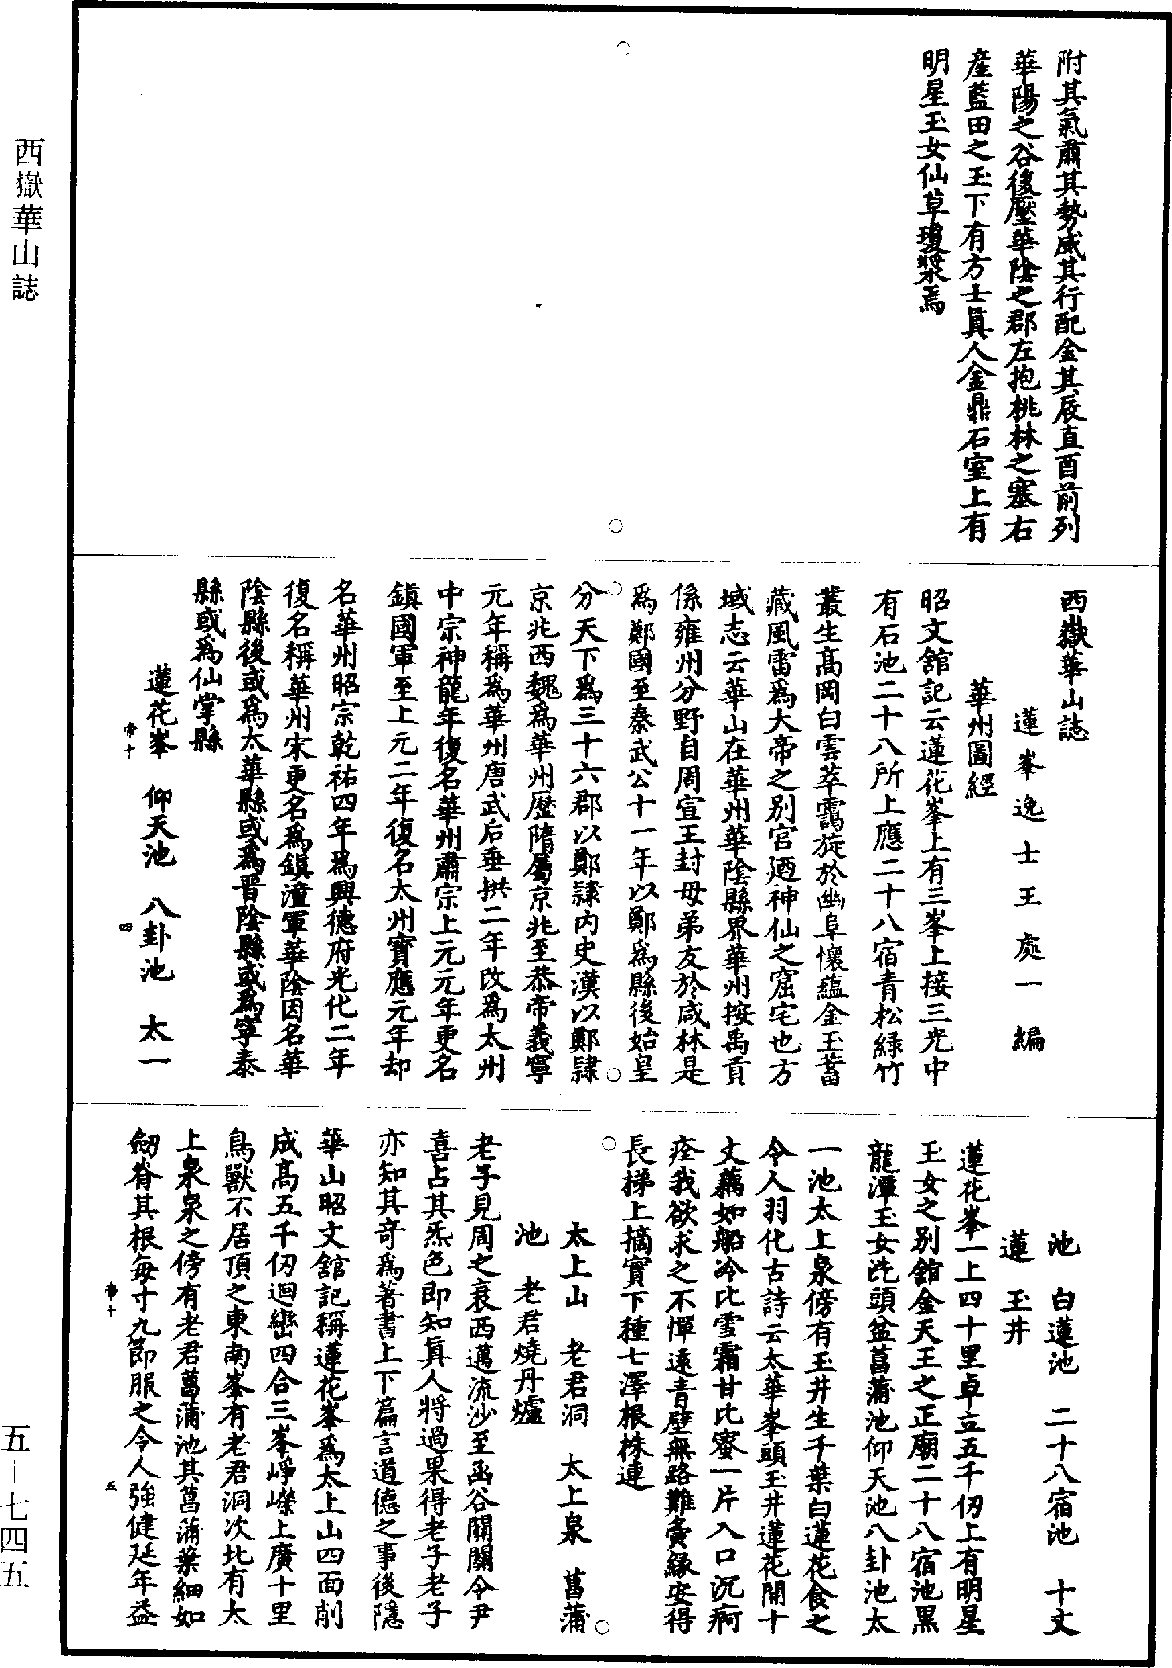 西嶽華山誌
附其氣肅其勢威其行配金其辰直酉前列
華陽之谷後壓華陰之郡左抱桃林之塞右
產藍田之玉下有方士眞人金鼎石室上有
明星玉女仙草瓊漿焉
西嶽華山誌
蓮峯逸士王處一編
華州圖經
昭文舘記云蓮花峯上有三峯上接三光中
有石池二十八所上應二十八宿青松綠竹
叢生高岡白雲萃靄旋於幽阜懷蘊金玉蓄
藏風雷爲大帝之別宮廼神仙之窟宅也方
域志云華山在華州華陰縣界華州按禹貢
係雍州分野自周宣王封母弟友於咸林是
爲鄭國至秦武公十一年以鄭爲縣後始皇
分天下爲三十六郡以鄭隷内史漢以鄭隷
京兆西魏爲華州歷隋屬京兆至恭帝義寧
元年稱爲華州唐武后垂拱二年改爲太州
中宗神龍年復名華州肅宗上元元年更名
鎮國軍至上元二年復名太州寶應元年却
名華州昭宗乾祐四年爲興德府光化二年
復名稱華州宋更名爲鎮潼軍華陰因名華
陰縣後或爲太華縣或爲晋陰縣或爲寧泰
縣或爲仙掌縣
蓮花峯 仰天池 八卦池 太一
帝十 四
池 白蓮池 二十八宿池 十丈
蓮 玉井
蓮花峯一上四十里卓立五千仞上有明星
玉女之别舘金天王之正廟二十八宿池黑
龍潭玉女洗頭盆菖蒲池仰天池八卦池太
一池太上泉傍有玉井生千葉白蓮花食之
令人羽化古詩云太華峯頭玉井蓮花開十
丈藕如船冷比雪霜甘比蜜一片入口沉痾
痊我欲求之不憚遠青壁無路難夤緣安得
長梯上摘實下種七澤根株連
太上山 老君洞 太上泉 菖蒲
池 老君燒丹爐
老子見周之衰西邁流沙至函谷關關令尹
喜占其炁色即知眞人將過果得老子老子
亦知其奇爲著書上下篇言道德之事後隱
華山昭文舘記稱蓮花峯爲太上山四面削
成高五千仞迴巒四合三峯崢嶸上廣十里
鳥獸不居頂之東南峯有老君洞次北有太
上泉泉之傍有老君菖蒲池其菖蒲葉細如
劒脊其根每寸九節服之令人強健延年益
帝十 五
五—七四五